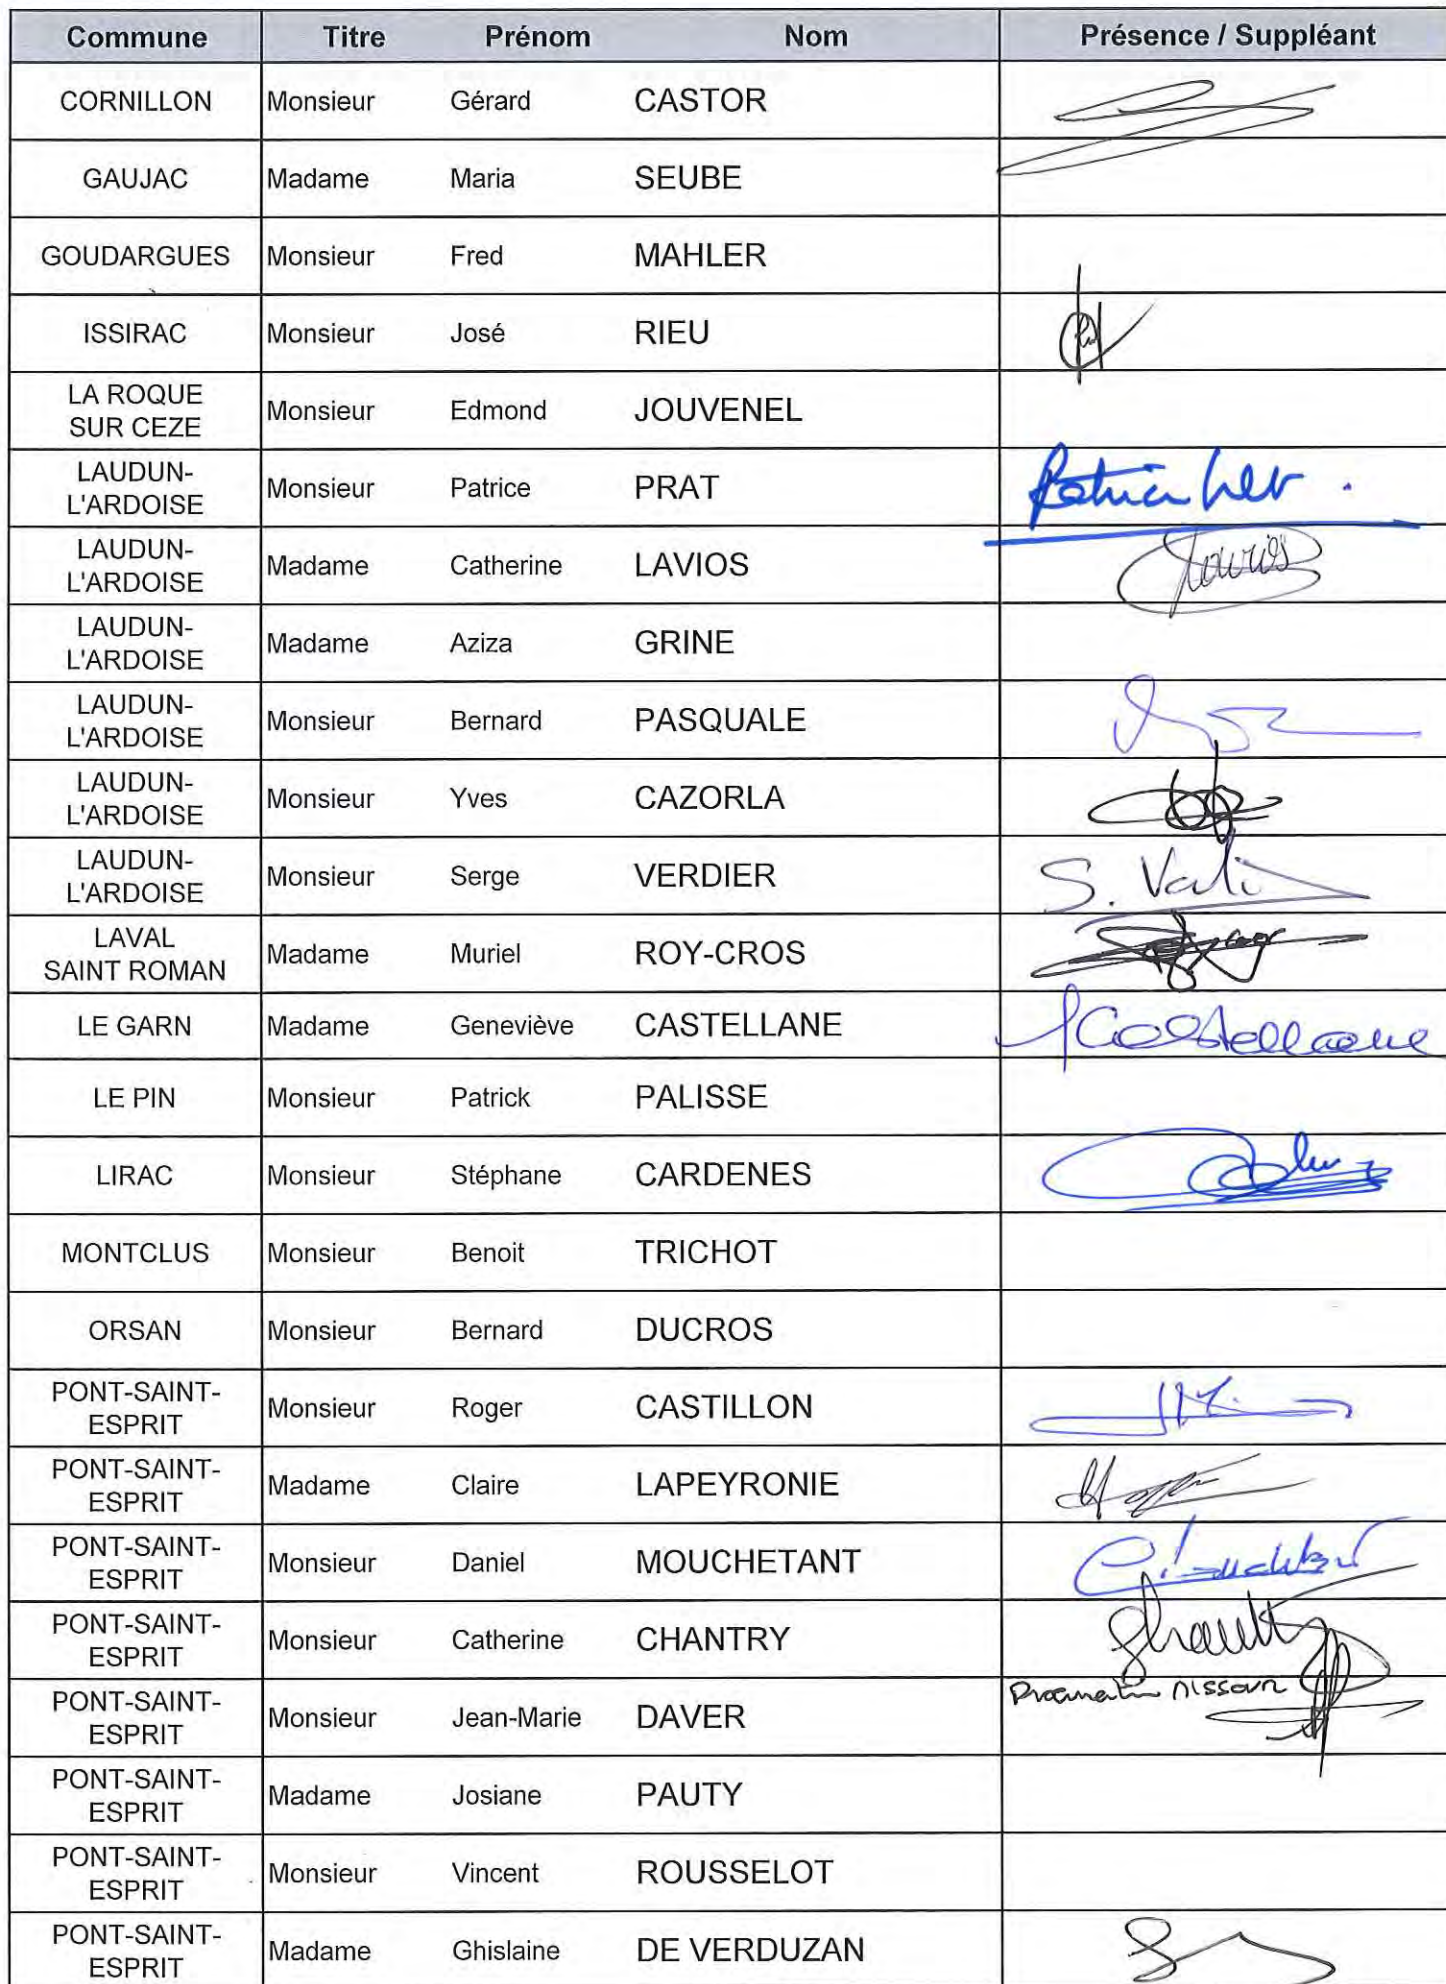 Commune Titre Prénom Nom Présence / Suppléant
CORNILLON Monsieur Gérard CASTOR
GAUJAC Madame Maria SEUBE
GOUDARGUES Monsieur Fred MAHLER
ISSIRAC Monsieur José RIEU
LA ROQUE
SUR CEZE Monsieur Edmond JOUVENEL
LAUDUN-
L'ARDOISE Monsieur Patrice PRAT
LAUDUN-
L'ARDOISE Madame Catherine LAVIOS
LAUDUN-
L'ARDOISE Madame Aziza GRINE
LAUDUN-
L'ARDOISE Monsieur Bernard PASQUALE
LAUDUN-
L'ARDOISE Monsieur Yves CAZORLA
LAUDUN-
L'ARDOISE Monsieur Serge VERDIER
LAVAL
SAINT ROMAN Madame Muriel ROY-CROS
LE GARN Madame Geneviève CASTELLANE Castellane
LE PIN Monsieur Patrick PALISSE
LIRAC Monsieur Stéphane CARDENES
MONTCLUS Monsieur Benoit TRICHOT
ORSAN Monsieur Bernard DUCROS
PONT-SAINT-
ESPRIT Monsieur Roger CASTILLON
PONT-SAINT-
ESPRIT Madame Claire LAPEYRONIE
PONT-SAINT-
ESPRIT Monsieur Daniel MOUCHETANT
PONT-SAINT-
ESPRIT Monsieur Catherine CHANTRY
PONT-SAINT-
ESPRIT Monsieur Jean-Marie DAVER
PONT-SAINT-
ESPRIT Madame Josiane PAUTY
PONT-SAINT-
ESPRIT Monsieur Vincent ROUSSELOT
PONT-SAINT-
ESPRIT Madame Ghislaine DE VERDUZAN